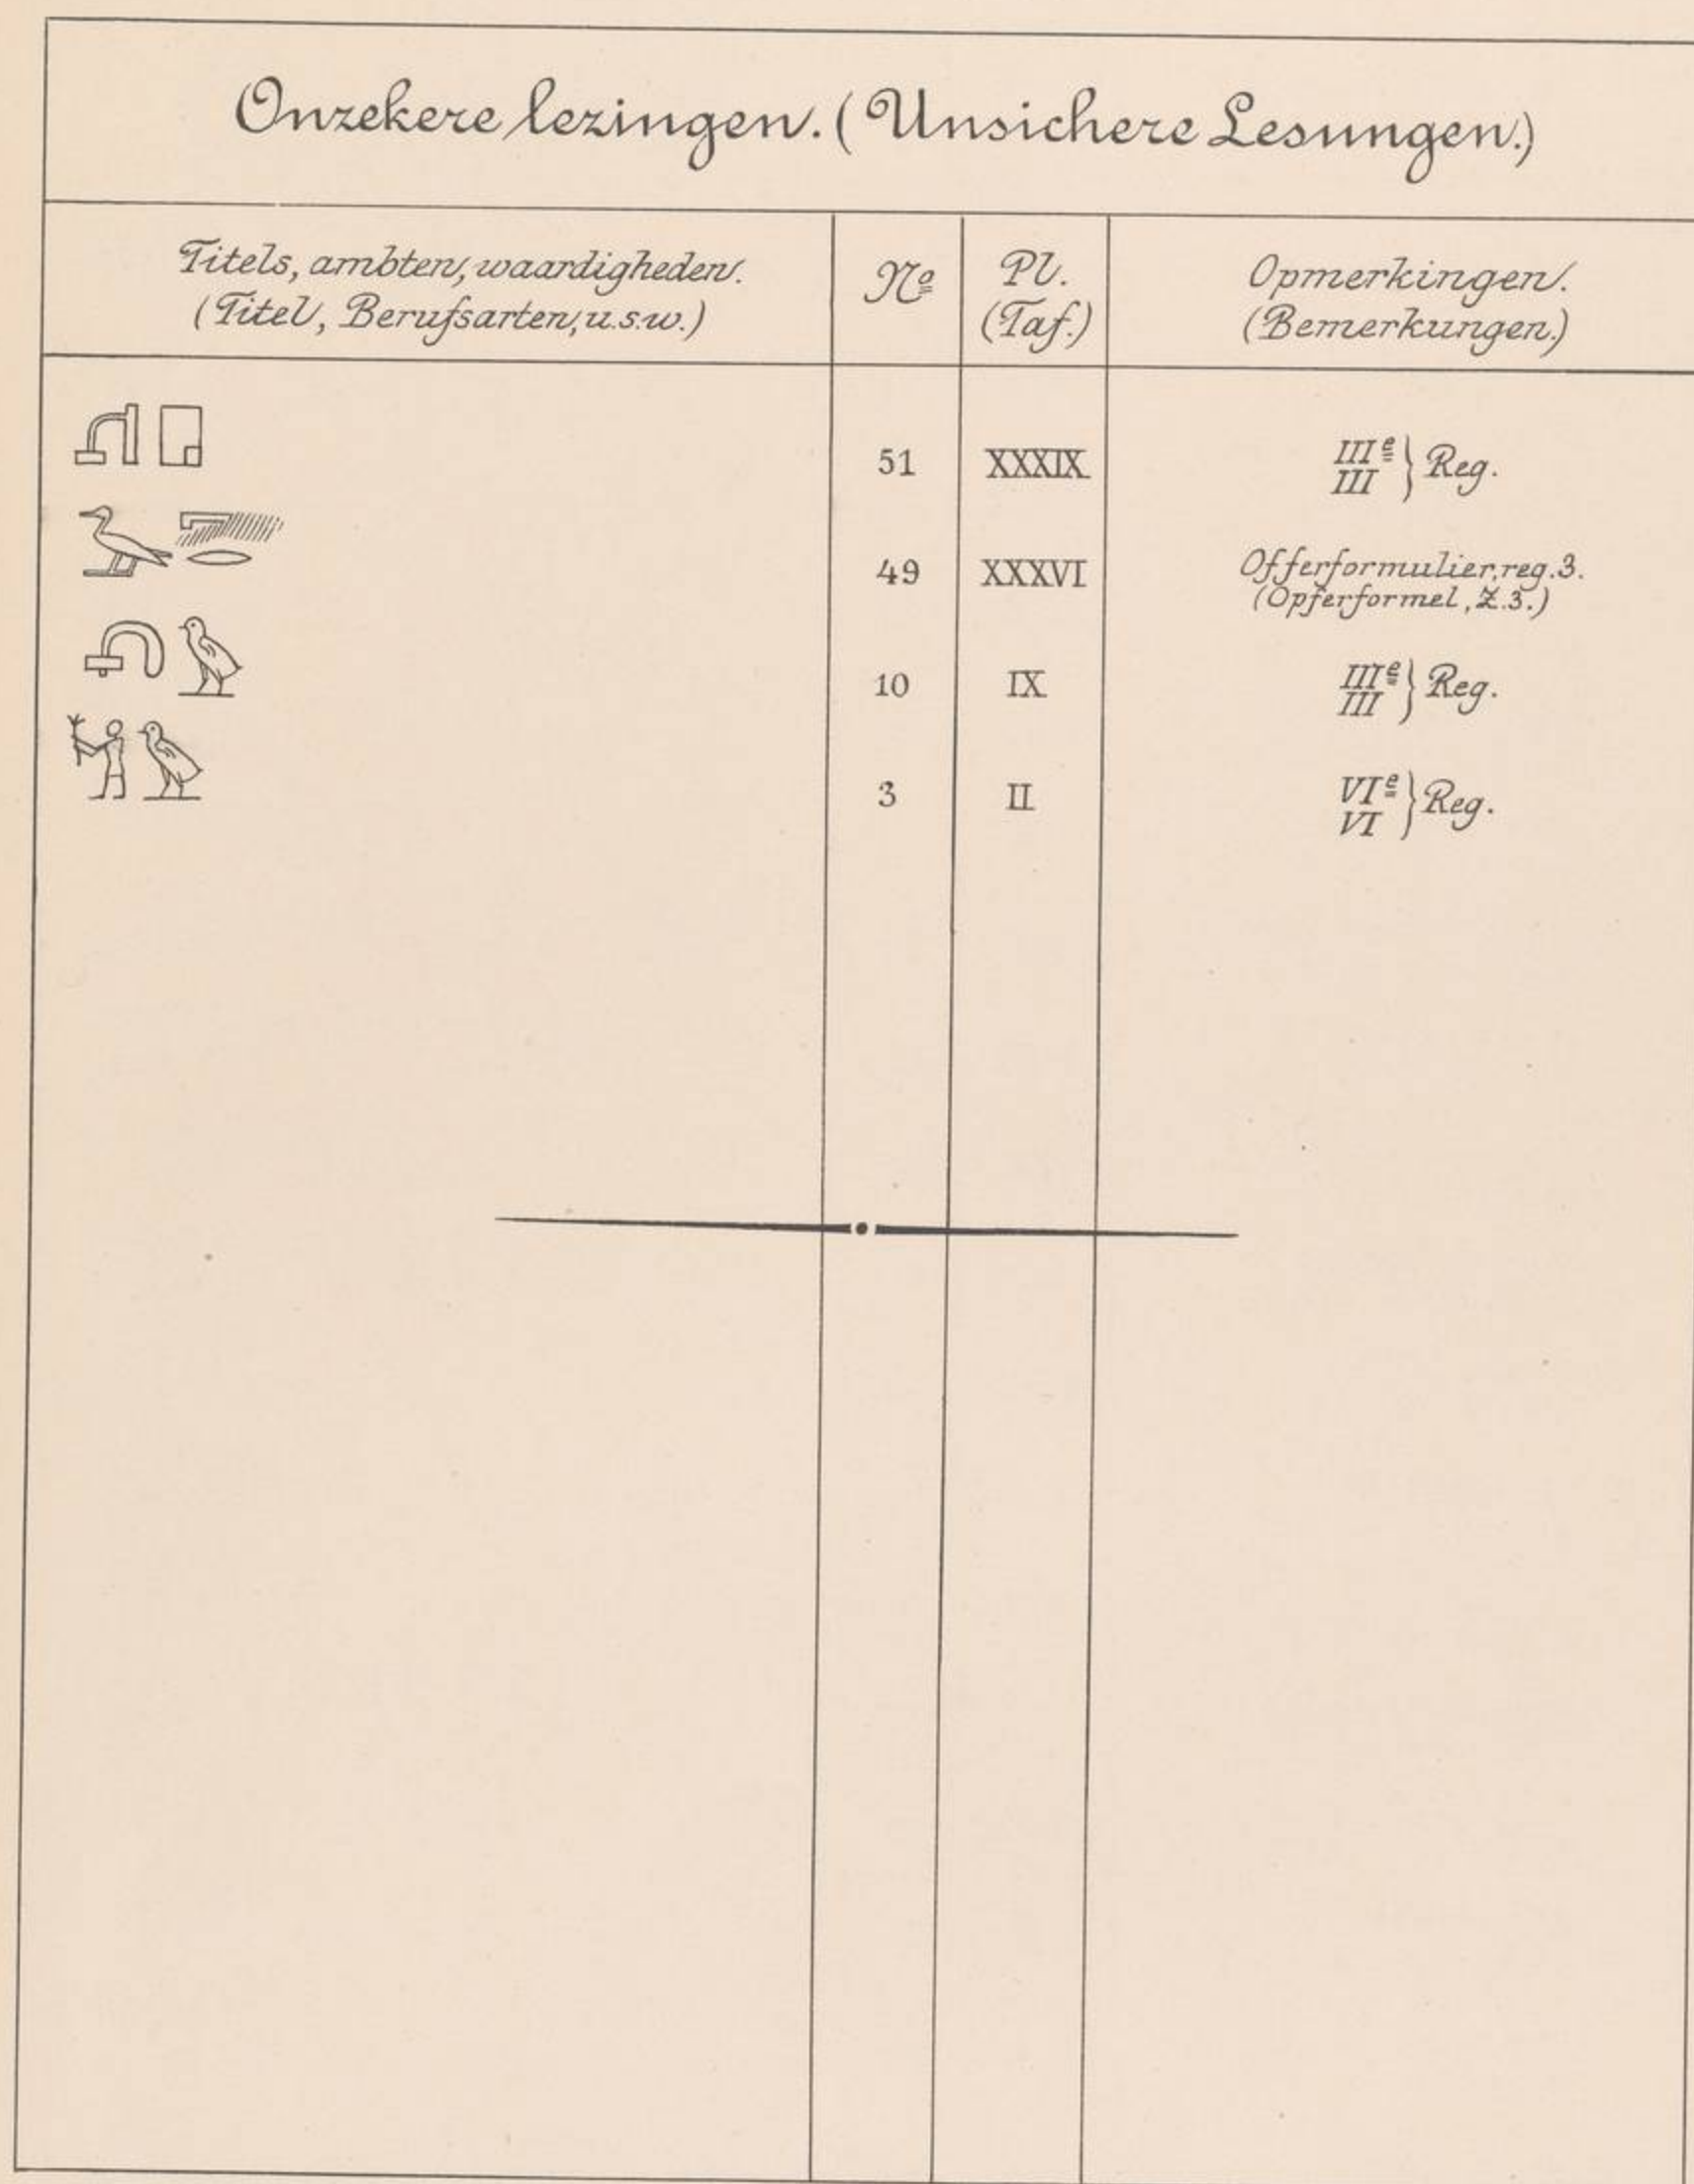 Onzekere lezingen. (Unsichere Lesungen.)
Titels, ambten, waardigheden.
(Titel, Berufsarten, u.s.w.)
Nº
Pl.
(Taf.)
Opmerkingen.
(Bemerkungen.)
51 XXXIX IIIe } Reg.
III
49 XXXVI Offerformulier, reg. 3.
(Opferformel, Z. 3.)
10 IX IIIe } Reg.
III
3 II VIe } Reg.
VI